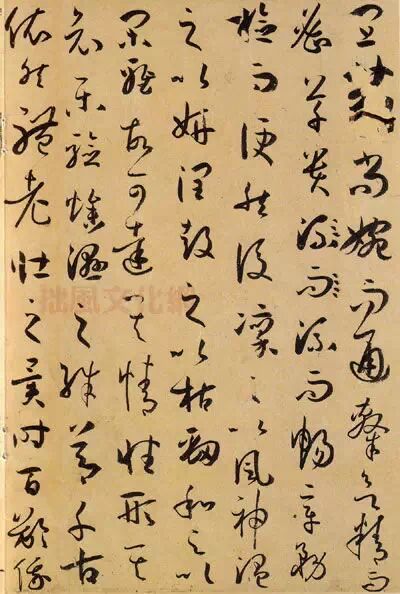 宜篆尚婉而通隸欲精而
密草貴流而流而暢章務
檢而便然後凜之以風神溫
之以妍潤鼓之以枯勁和之以
閑雅故可達其情性形其
哀樂驗燥濕之殊節千古
依然體老壯之異時百齡俄
拙風文化網